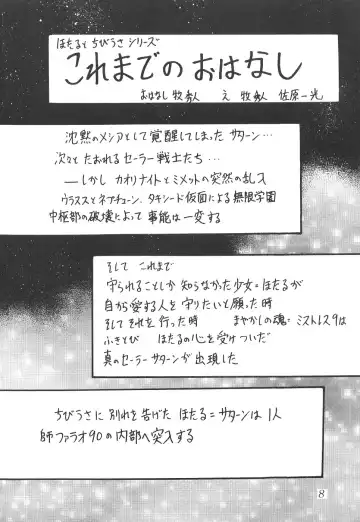 ほたるとちびうさシリーズ
これまでのおはなし
おはなし 牧秀人 え 牧秀人 佐原一光
沈黙のメシアとして覚醒してしまったサターン…
次々とたおれるセーラー戦士たち…
―しかし カオリナイトとミメットの突然の乱入
ウラヌスとネプチューン、タキシード仮面による無限学園
中枢部の破壊によって事態は一変する
そして これまで
守られることしか知らなかった少女=ほたるが
自から愛する人を守りたいと願った時
そしてそれを行った時 まやかしの魂=ミストレス9は
ふきとび ほたるの心を受けついだ
真のセーラーサターンが出現した
ちびうさに別れを告げた ほたる=サターンは1人
師ファラオ90の内部へ突入する
8